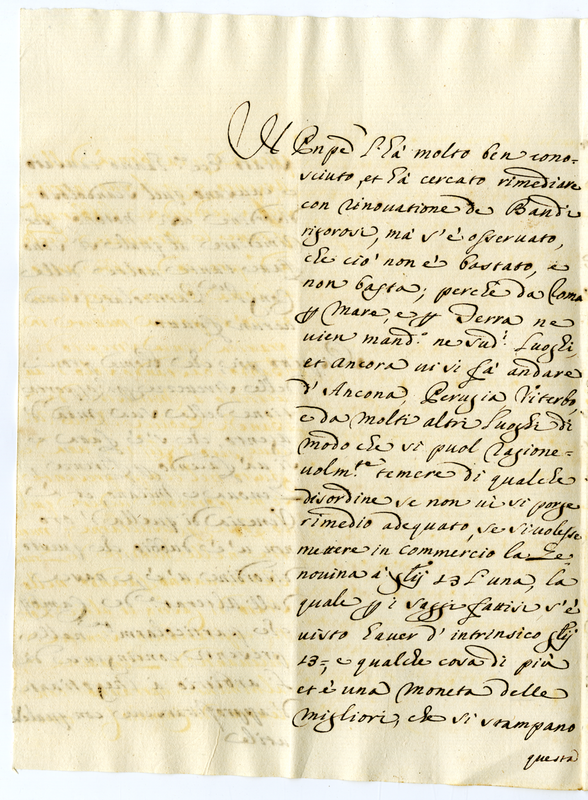 Il Pnpe l'hà molto ben cono=
sciuto, et hà cercato rimediare
con rinovatione de Bandi
rigorosi, mà s'è osservato,
che ciò non è bastato, e
non basta; perche da Roma
p Mare, e p Terra ne
vien mand.o ne sud.i Luoghi
et ancora vi si fà andare
d'Ancona, Perugia Viterbo,
e da molti altri Luoghi di
modo che si puol ragione=
volm.te temere di qualche
disordine se non vi si porge
rimedio adequato, se si volesse
mettere in commercio la Ge
novina à glij 13 l'una, la
quale p i saggi fattisi s'è
visto haver d'intrinsico glij
13=, e qualche cosa di più
et è una moneta delle
migliori, che si stampano
questa